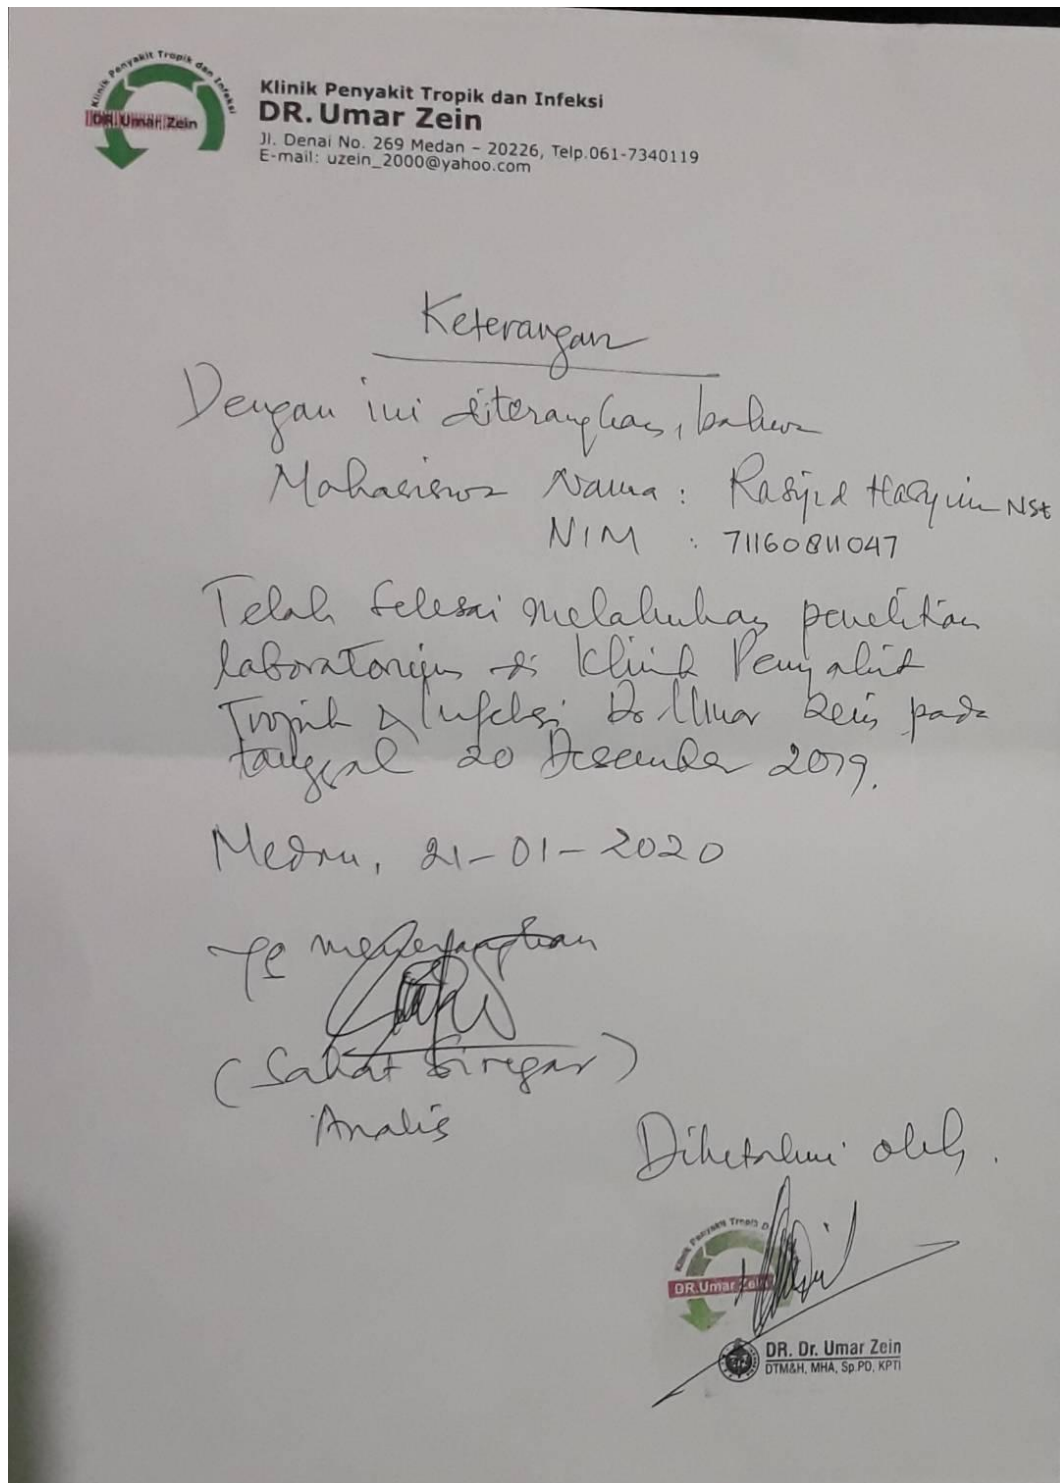 Klinik Penyakit Tropik dan Infeksi
DR. Umar Zein
Klinik Penyakit Tropik dan Infeksi
DR. Umar Zein
Jl. Denai No. 269 Medan – 20226, Telp.061-7340119
E-mail: uzein_2000@yahoo.com
Keterangan
Dengan ini diterangkan, bahwa
Mahasiswa Nama : Rasyid Hasyim NSt
NIM : 71160811047
Telah selesai melakukan penelitian
laboratorium di Klinik Penyakit
Tropik & Infeksi Dr Umar Zein pada
tanggal 20 Desember 2019.
Medan, 21-01-2020
yg menerangkan
(Sahat Siregar)
Analis
Diketahui oleh.
Klinik Penyakit Tropik D
DR.Umar Zein
DR. Dr. Umar Zein
DTM&H, MHA, Sp.PD, KPTI